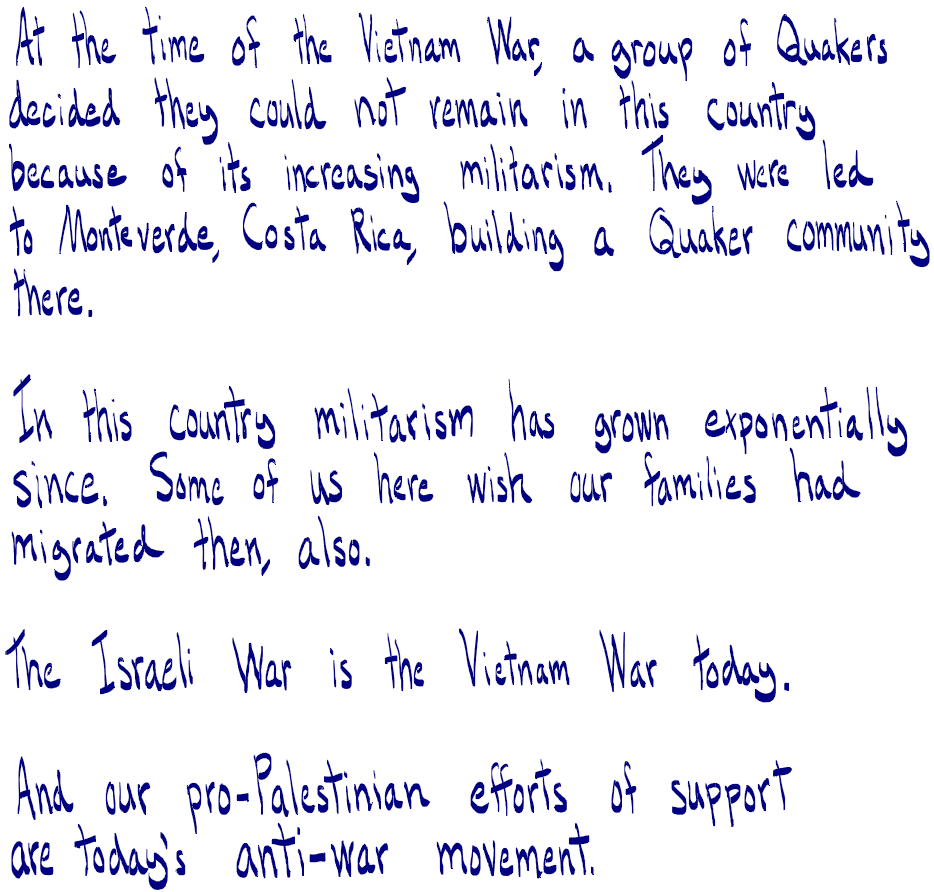 At the time of the Vietnam War, a group of Quakers
decided they could not remain in this country
because of its increasing militarism. They were led
to Monteverde, Costa Rica, building a Quaker community
there.

In this country militarism has grown exponentially
since. Some of us here wish our families had
migrated then, also.

The Israeli War is the Vietnam War today.

And our pro-Palestinian efforts of support
are today's anti-war movement.